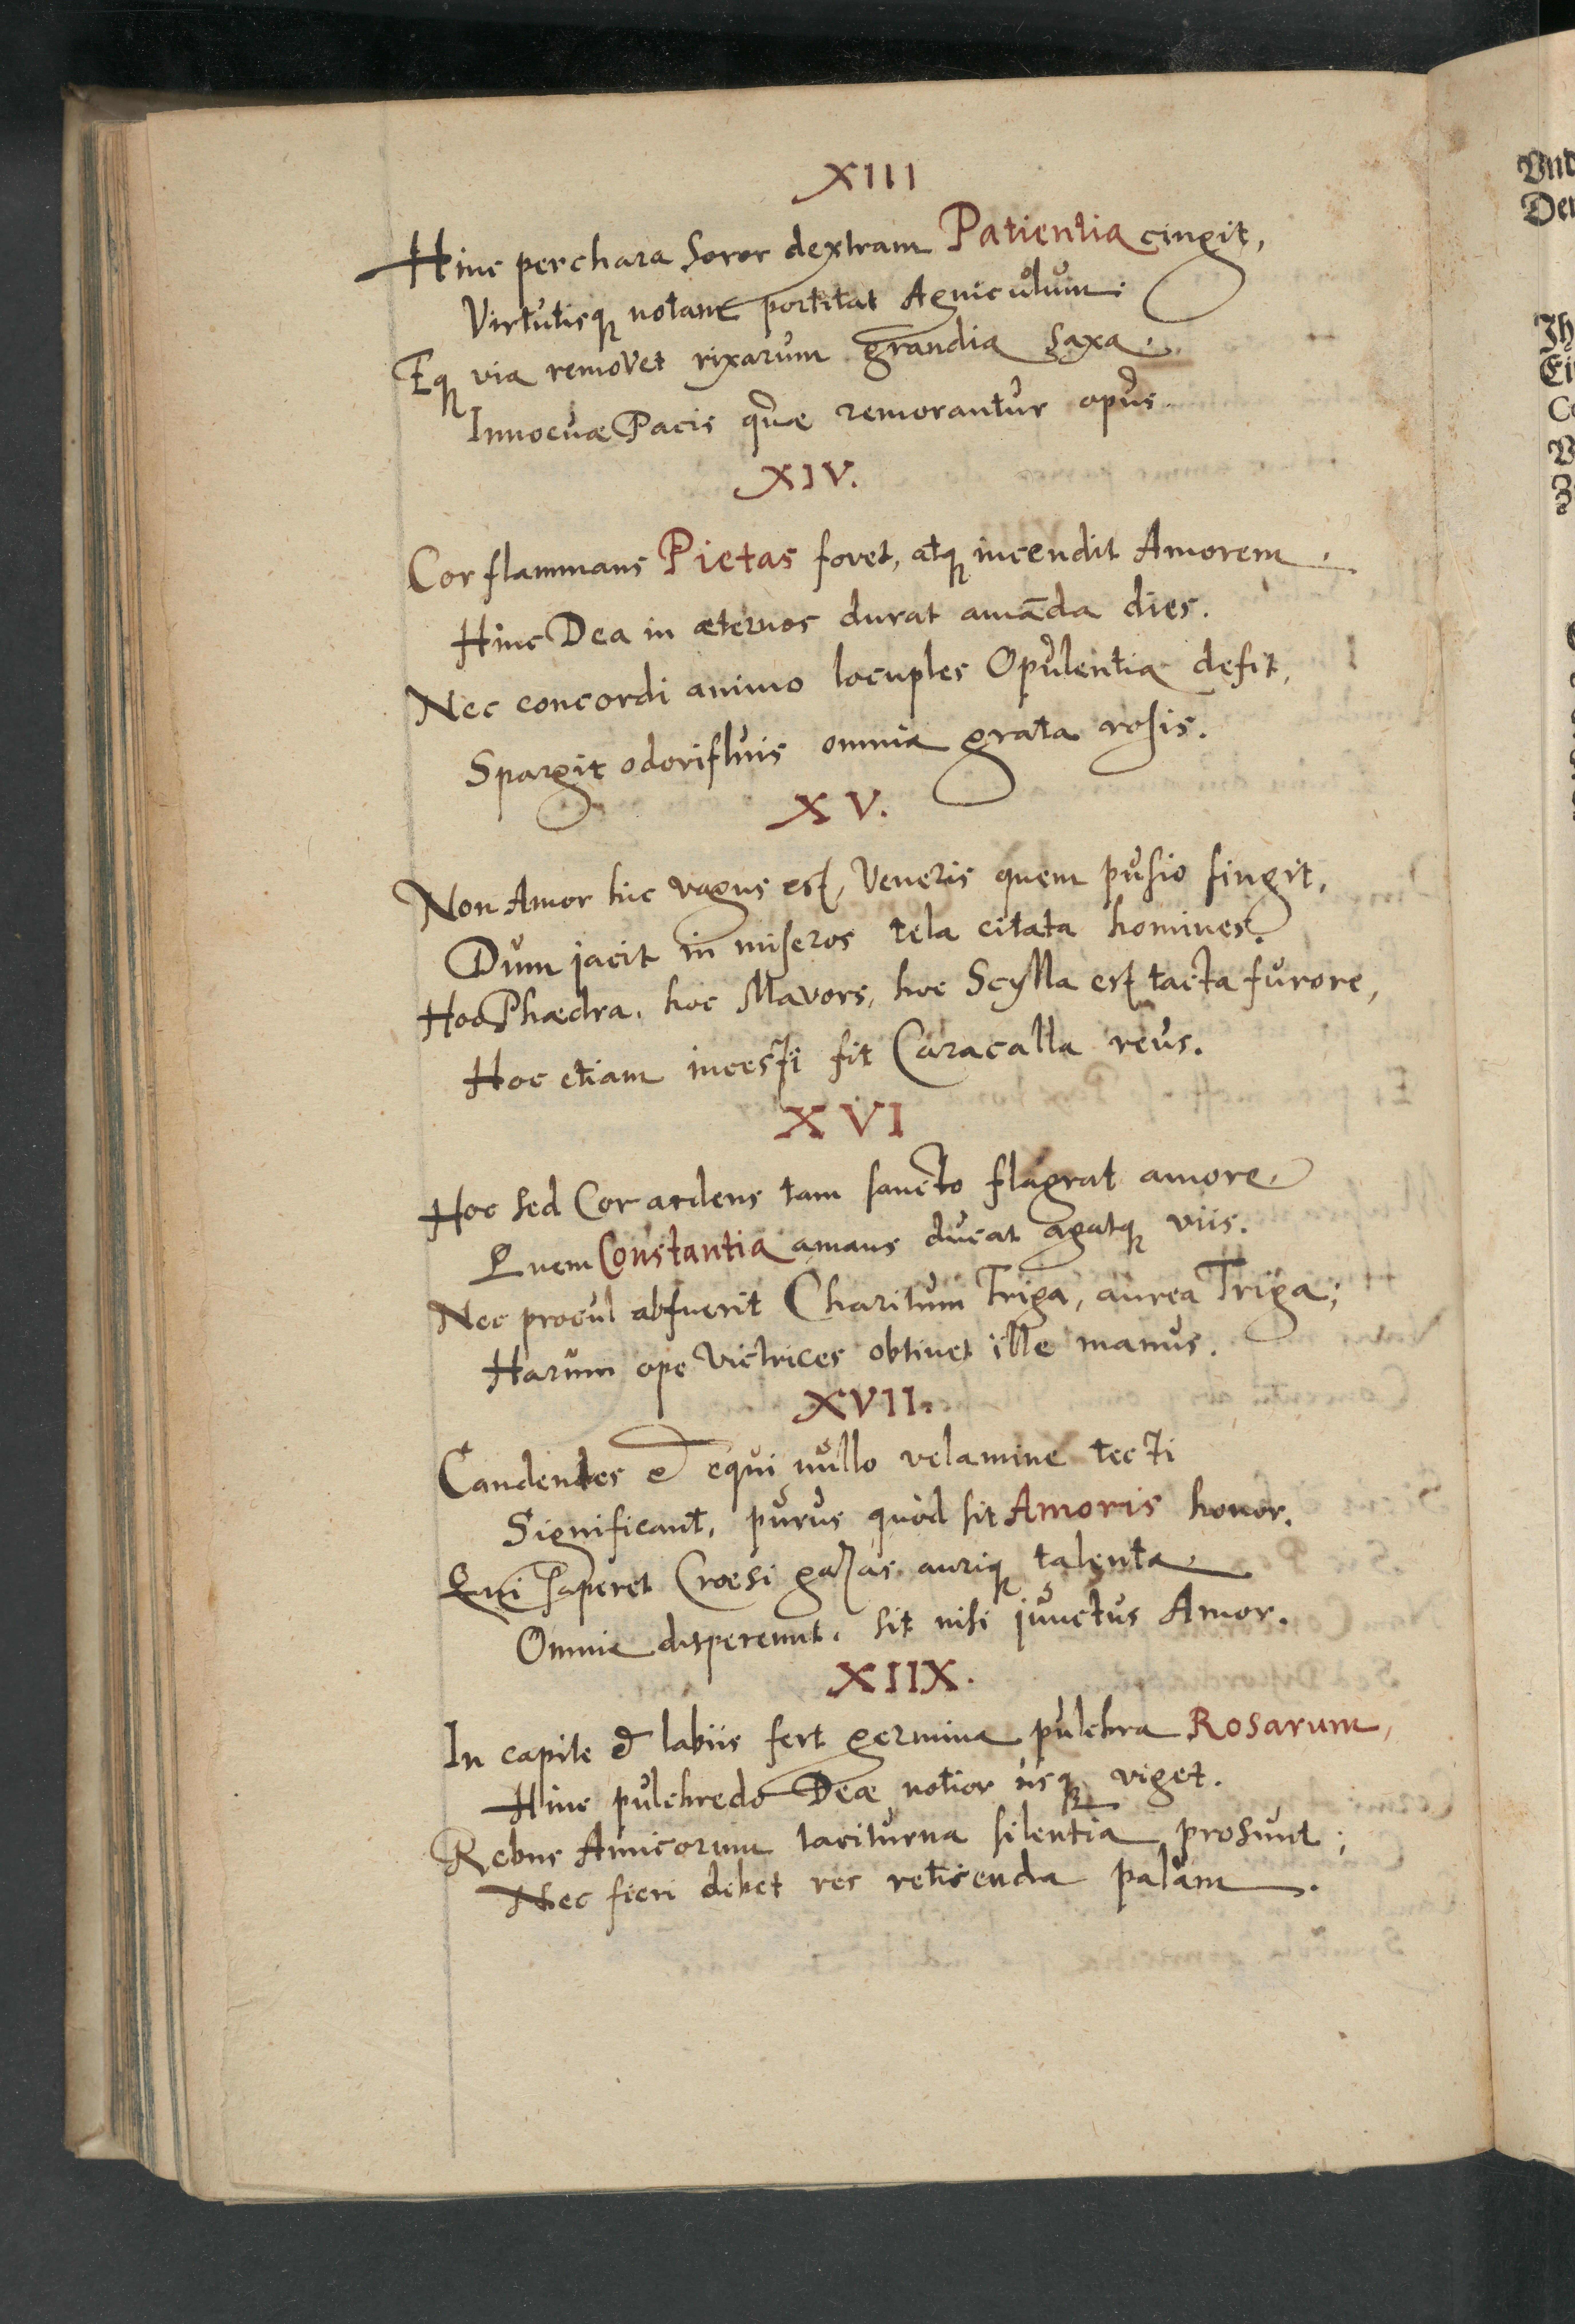 XIII
Hinc perchara Soror dextram Patientia cingit,
Virtutisq notam portitat Agniculum:
Eq via removet rixarum grandia saxa.
Innocuæ Pacis quæ remorantur opus.
XIV.
Cor flammans Pietas fovet, atq incendit Amorem.
Hinc Dea in æternos durat amāda dies.
Nec concordi animo locuples Opulentia defit,
Spargit odorifluis omnia grata rosis.
XV.
Non Amor hic vagus est, Veneris quem pusio fingit,
Dum jacit in miseros tela citata homines.
Hoc Phædra, hoc Mavors, hoc Scylla est tacta furore,
Hoc etiam incesti fit Caracalla reus.
XVI
Hoc sed Cor ardens tam sancto flagrat amore
Quem Constantia amans ducat agatq viis.
Nec procul abfuerit Charitum Triga, aurea Triga;
Harum ope victrices obtinet ille manus.
XVII.
Candentes & equi nullo velamine tecti
Significant, purus quòd sit Amoris honor.
Qui saperet Croesi gazas auriq talenta.
Omnia disperemt. sit nisi junctus Amor.
XIIX.
In capite & labiis fert germina pulchra Rosarum,
Hinc pulchredo Deæ notior usq viget.
Rebus Amicorum taciturna silentia prosunt;
Nec fieri debet res reticenda palàm.
Und
Der
Ih
Ei
Co
V